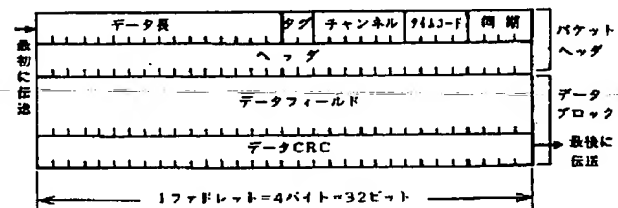 データ長 タグ チャンネル タイムコード 同期
ヘッダ
データフィールド
データCRC
最初に伝送
パケットヘッダ
データブロック
最後に伝送
1ファドレット=4バイト=32ビット